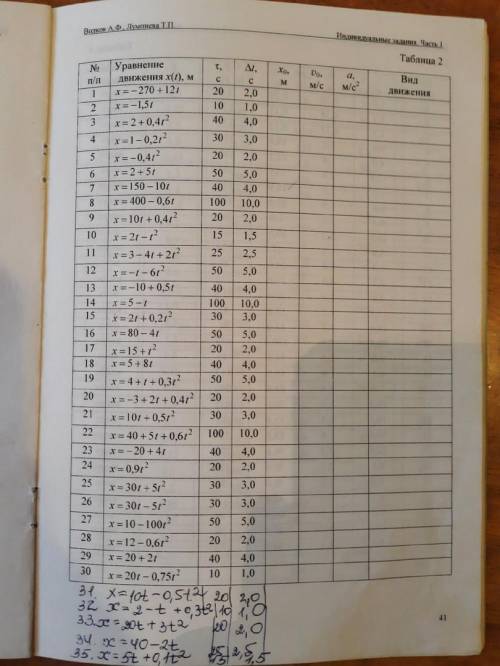 Волков А.Ф., Лумпиева Т.П.
Индивидуальные задания. Часть 1
Таблица 2
№ п/п Уравнение движения x(t), м τ, с Δt, с x₀, м v₀, м/с a, м/с² Вид движения
1 x = −270 + 12t 20 2,0
2 x = −1,5t 10 1,0
3 x = 2 + 0,4t² 40 4,0
4 x = 1 − 0,2t² 30 3,0
5 x = −0,4t² 20 2,0
6 x = 2 + 5t 50 5,0
7 x = 150 − 10t 40 4,0
8 x = 400 − 0,6t 100 10,0
9 x = 10t + 0,4t² 20 2,0
10 x = 2t − t² 15 1,5
11 x = 3 − 4t + 2t² 25 2,5
12 x = −t − 6t² 50 5,0
13 x = −10 + 0,5t 40 4,0
14 x = 5 − t 100 10,0
15 x = 2t + 0,2t² 30 3,0
16 x = 80 − 4t 50 5,0
17 x = 15 + t² 20 2,0
18 x = 5 + 8t 40 4,0
19 x = 4 + t + 0,3t² 50 5,0
20 x = −3 + 2t + 0,4t² 20 2,0
21 x = 10t + 0,5t² 30 3,0
22 x = 40 + 5t + 0,6t² 100 10,0
23 x = −20 + 4t 40 4,0
24 x = 0,9t² 20 2,0
25 x = 30t + 5t² 30 3,0
26 x = 30t − 5t² 30 3,0
27 x = 10 − 100t² 50 5,0
28 x = 12 − 0,6t² 20 2,0
29 x = 20 + 2t 40 4,0
30 x = 20t − 0,75t² 10 1,0
31. x = 10t − 0,5t² 20 2,0
32. x = 2 − t + 0,3t² 10 1,0
33. x = 20t + 3t² 20 2,0
34. x = 40 − 2t 25 2,5
35. x = 5t + 0,1t² 15 1,5
41